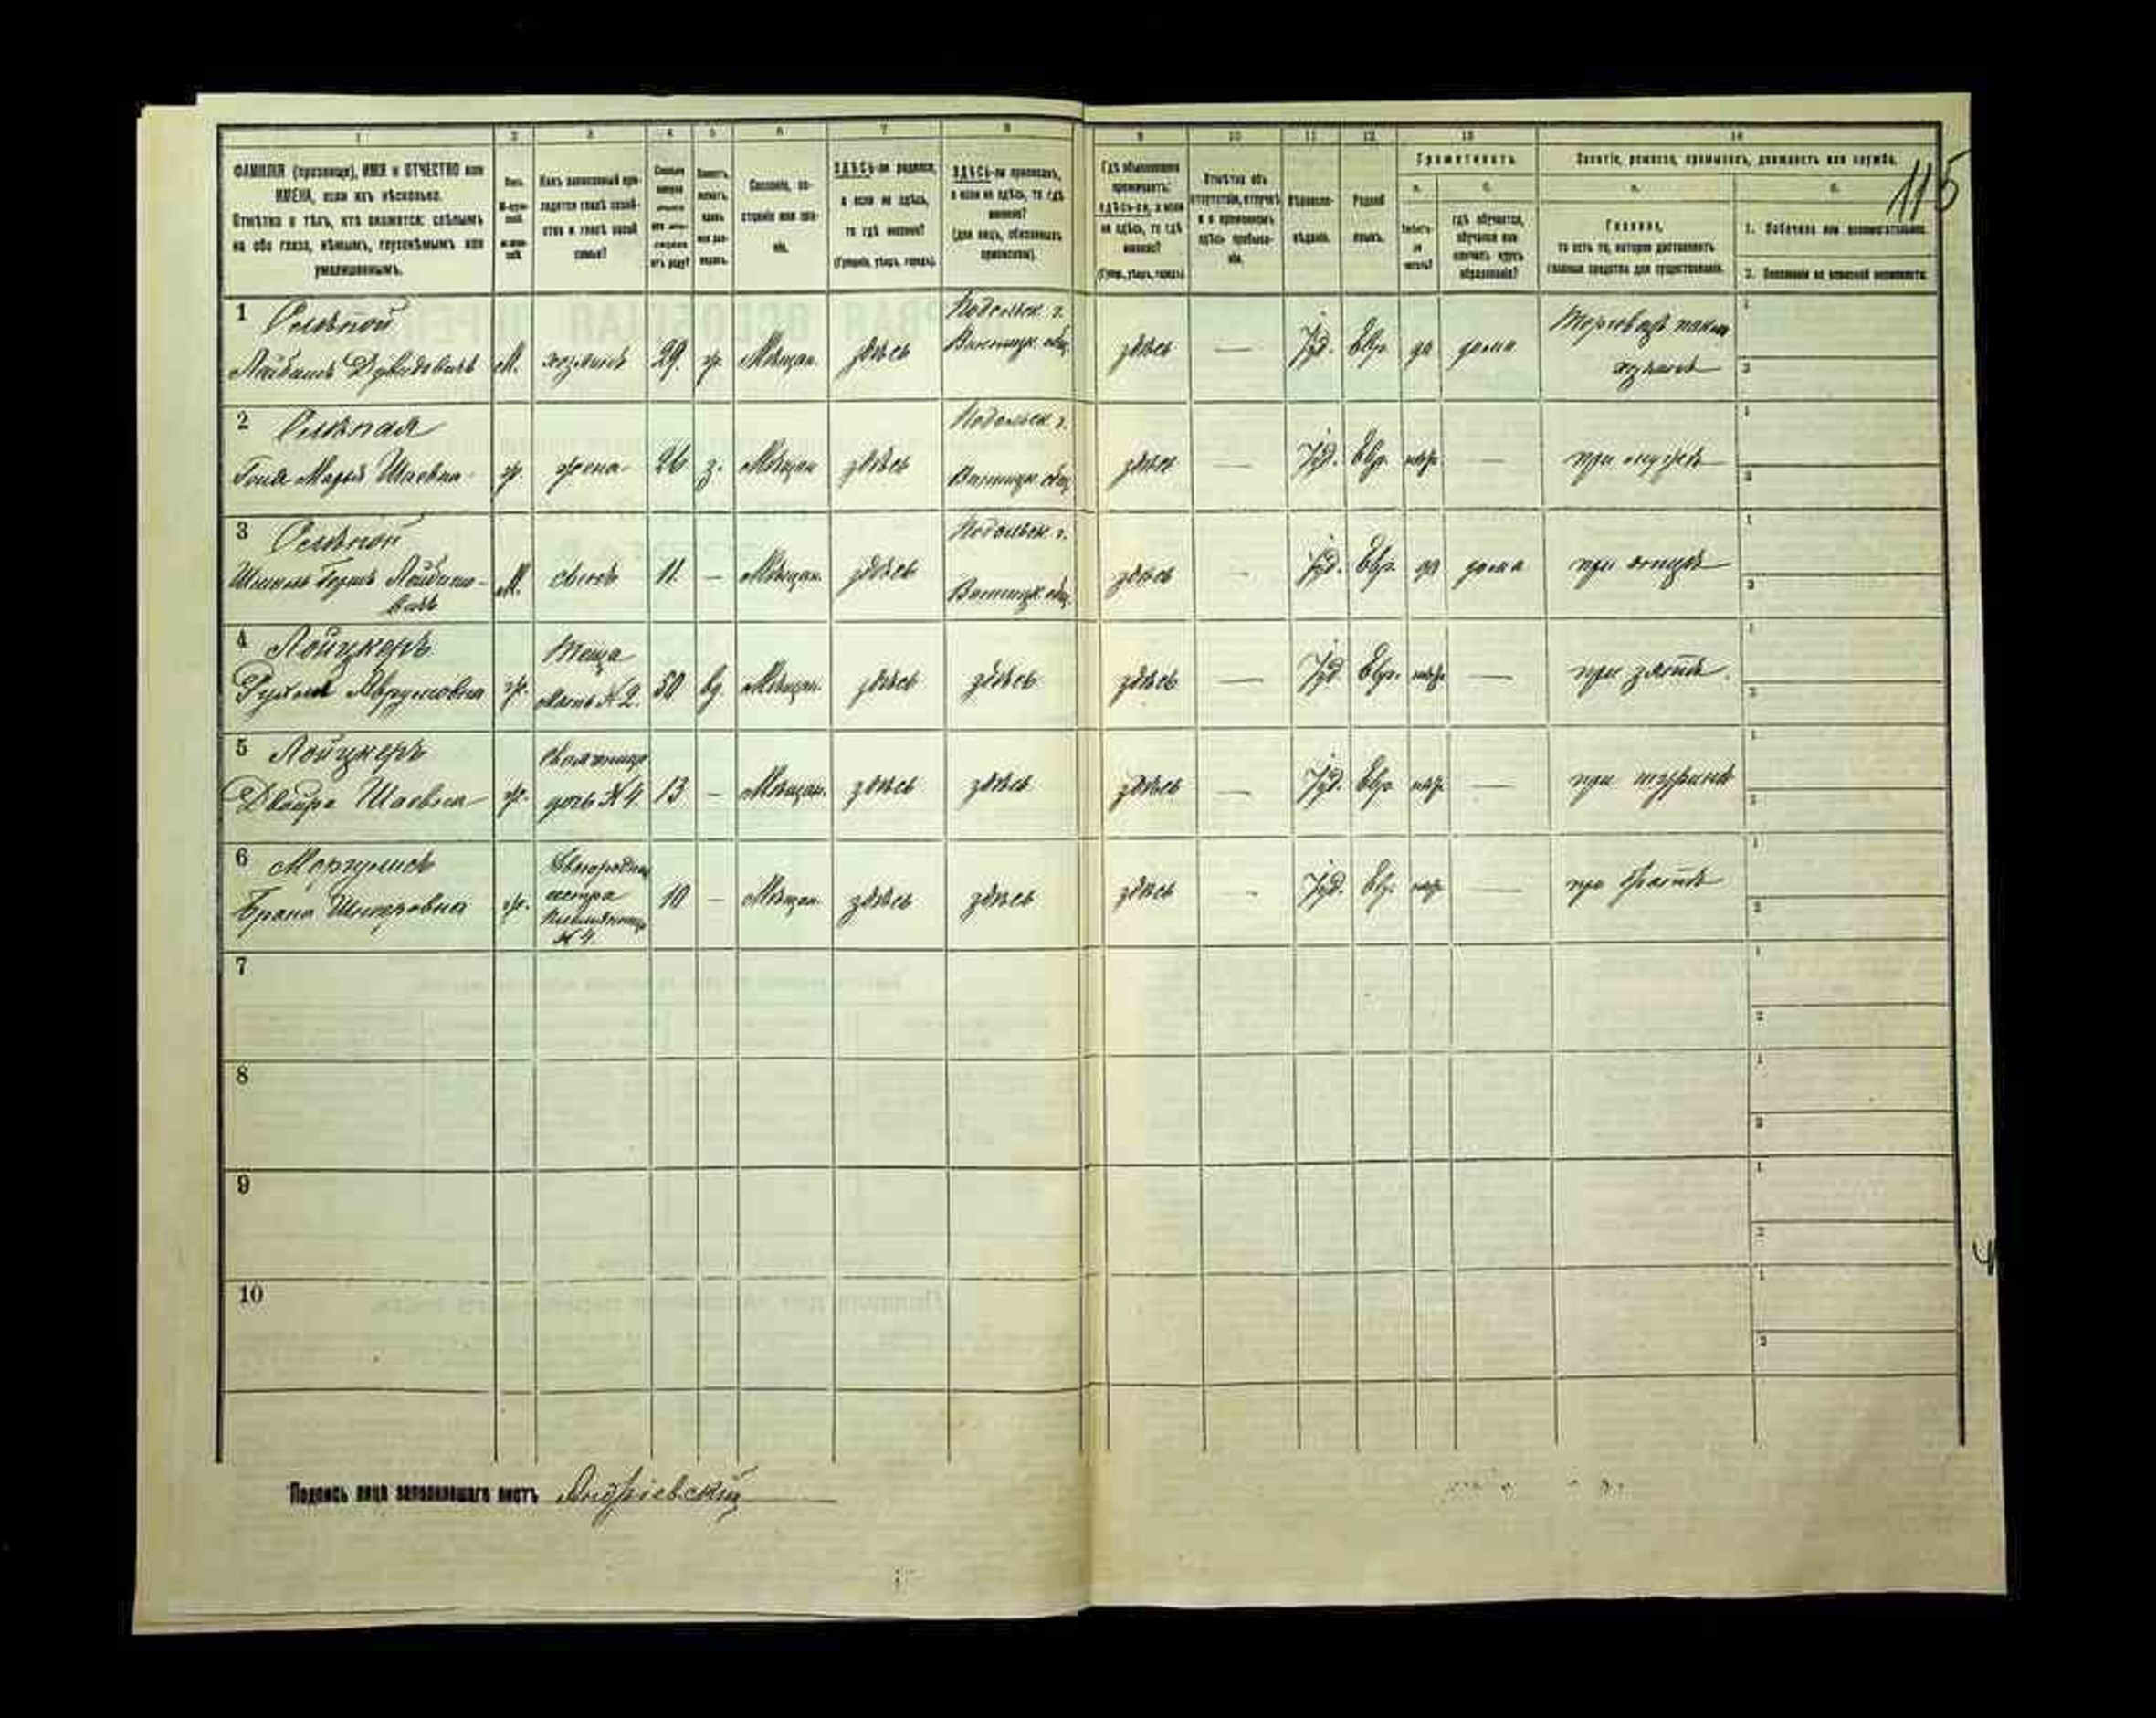 1 2 3 4 5 6 7 8 9 10 11 12 13 14
115
ФАМИЛІЯ (прозвище), ИМЯ и ОТЧЕСТВО или
ИМЕНА, если ихъ нѣсколько.
Отмѣтка о тѣхъ, кто окажется: слѣпымъ
на оба глаза, нѣмымъ, глухонѣмымъ или
умалишеннымъ.
Какъ записанный при-
ходится главѣ хозяй-
ства и главѣ своей
семьи?
Сословіе, со-
стояніе или зва-
ніе.
ЗДѢСЬ-ли родился,
а если не здѣсь,
то гдѣ именно?
(Губернія, уѣздъ, городъ).
ЗДѢСЬ-ли приписанъ,
а если не здѣсь, то гдѣ
именно?
(для лицъ, обязанныхъ
припискою).
Гдѣ обыкновенно
проживаетъ:
здѣсь-ли, а если
не здѣсь, то гдѣ
именно?
(Губер., уѣздъ, городъ)
Отмѣтка объ
отсутствіи, отлучкѣ
и о временномъ
здѣсь пребыва-
ніи.
Вѣроиспо-
вѣданіе.
Родной
языкъ.
Грамотность.
а. б.
Умѣетъ-
ли
читать?
гдѣ обучается,
обучался или
кончилъ курсъ
образованія?
Занятіе, ремесло, промыселъ, должность или служба.
а. б.
Главное,
то есть то, которое доставляетъ
главныя средства для существованія.
1. Побочное или вспомогательное.
2. Положеніе по воинской повинности.
1
Лейбишъ Дувидовичъ М. хозяинъ 29. ж. Мѣщан. здѣсь Подольск. г. Винницк. общ. здѣсь — Іуд. Евр. да дома
2
Шаевна ж. жена 26 з. Мѣщан здѣсь Подольск. г. Винницк. общ. здѣсь — Іуд. Евр. нѣт — при мужѣ
3
Лейбишо-
вичъ М. сынъ 11. — Мѣщан. здѣсь Подольск. г. Винницк. общ. здѣсь — Іуд. Евр. да дома при отцѣ
4 Лойцкеръ
Рухля Аврумовна ж. Теща мать №2. 50 вд. Мѣщан. здѣсь здѣсь здѣсь — Іуд. Евр. нѣт — при зятѣ.
5 Лойцкеръ
Двойра Шаевна ж. Свояченица дочь №4. 13 — Мѣщан. здѣсь здѣсь здѣсь — Іуд. Евр. нѣт —
6 Моргулисъ
Брана ж. Двоюродная сестра племянница №4. 10 — Мѣщан. здѣсь здѣсь здѣсь — Іуд. Евр. нѣт — при братѣ
7
8
9
10
Подпись лица заполнявшаго листъ Андріевскій